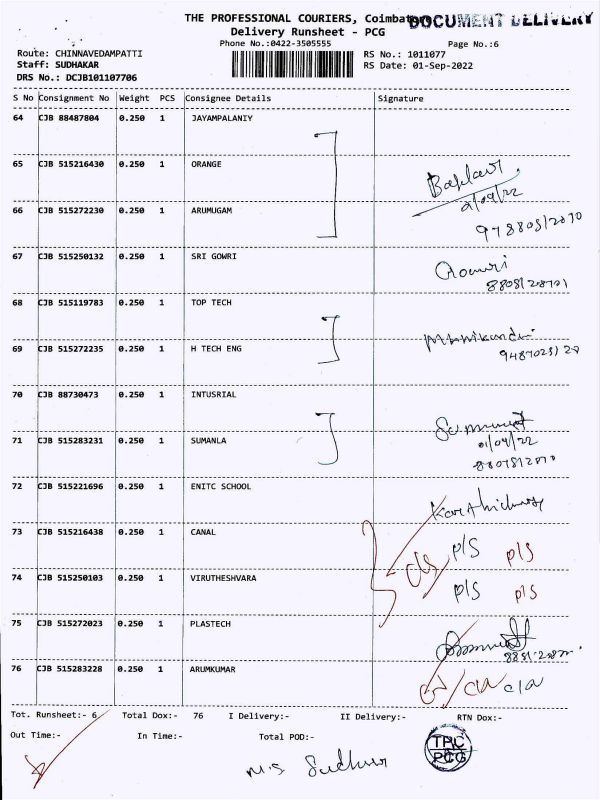 THE PROFESSIONAL COURIERS, Coimbatore
DOCUMENT DELIVERY
Delivery Runsheet - PCG
Phone No.:0422-3505555
Page No.:6
Route: CHINNAVEDAMPATTI
RS No.: 1011077
Staff: SUDHAKAR
RS Date: 01-Sep-2022
DRS No.: DCJB101107706
S No Consignment No Weight PCS Consignee Details Signature
64 CJB 88487804 0.250 1 JAYAMPALANIY
65 CJB 515216430 0.250 1 ORANGE
66 CJB 515272230 0.250 1 ARUMUGAM
67 CJB 515250132 0.250 1 SRI GOWRI Gowri
68 CJB 515119783 0.250 1 TOP TECH
69 CJB 515272235 0.250 1 H TECH ENG
70 CJB 88730473 0.250 1 INTUSRIAL
71 CJB 515283231 0.250 1 SUMANLA
72 CJB 515221696 0.250 1 ENITC SCHOOL
73 CJB 515216438 0.250 1 CANAL P/S P/S
74 CJB 515250103 0.250 1 VIRUTHESHVARA P/S P/S
75 CJB 515272023 0.250 1 PLASTECH
76 CJB 515283228 0.250 1 ARUMKUMAR
Tot. Runsheet:- 6 Total Dox:- 76 I Delivery:- II Delivery:- RTN Dox:-
Out Time:- In Time:- Total POD:-
TPC
PCG